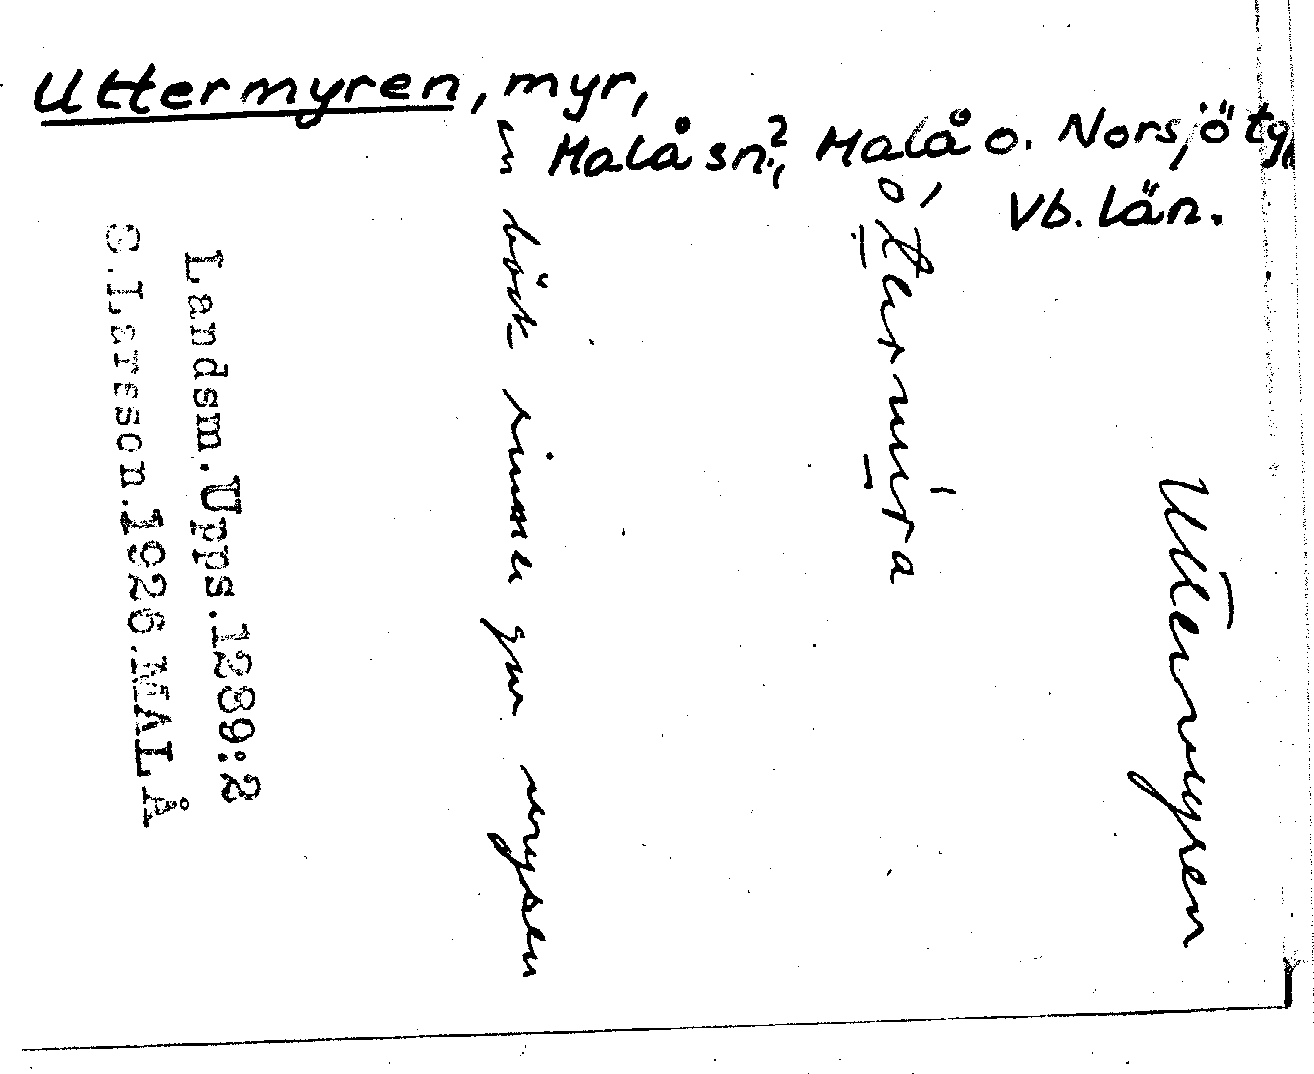 Uttermyren, myr,
Malå sn, Malå o. Norsjö tg,
Vb. län.
Uttermyren
ó, termýra
en bäck rinner gm myren
Landsm.Upps.1289:2
S.Larsson.1926.MALÅ